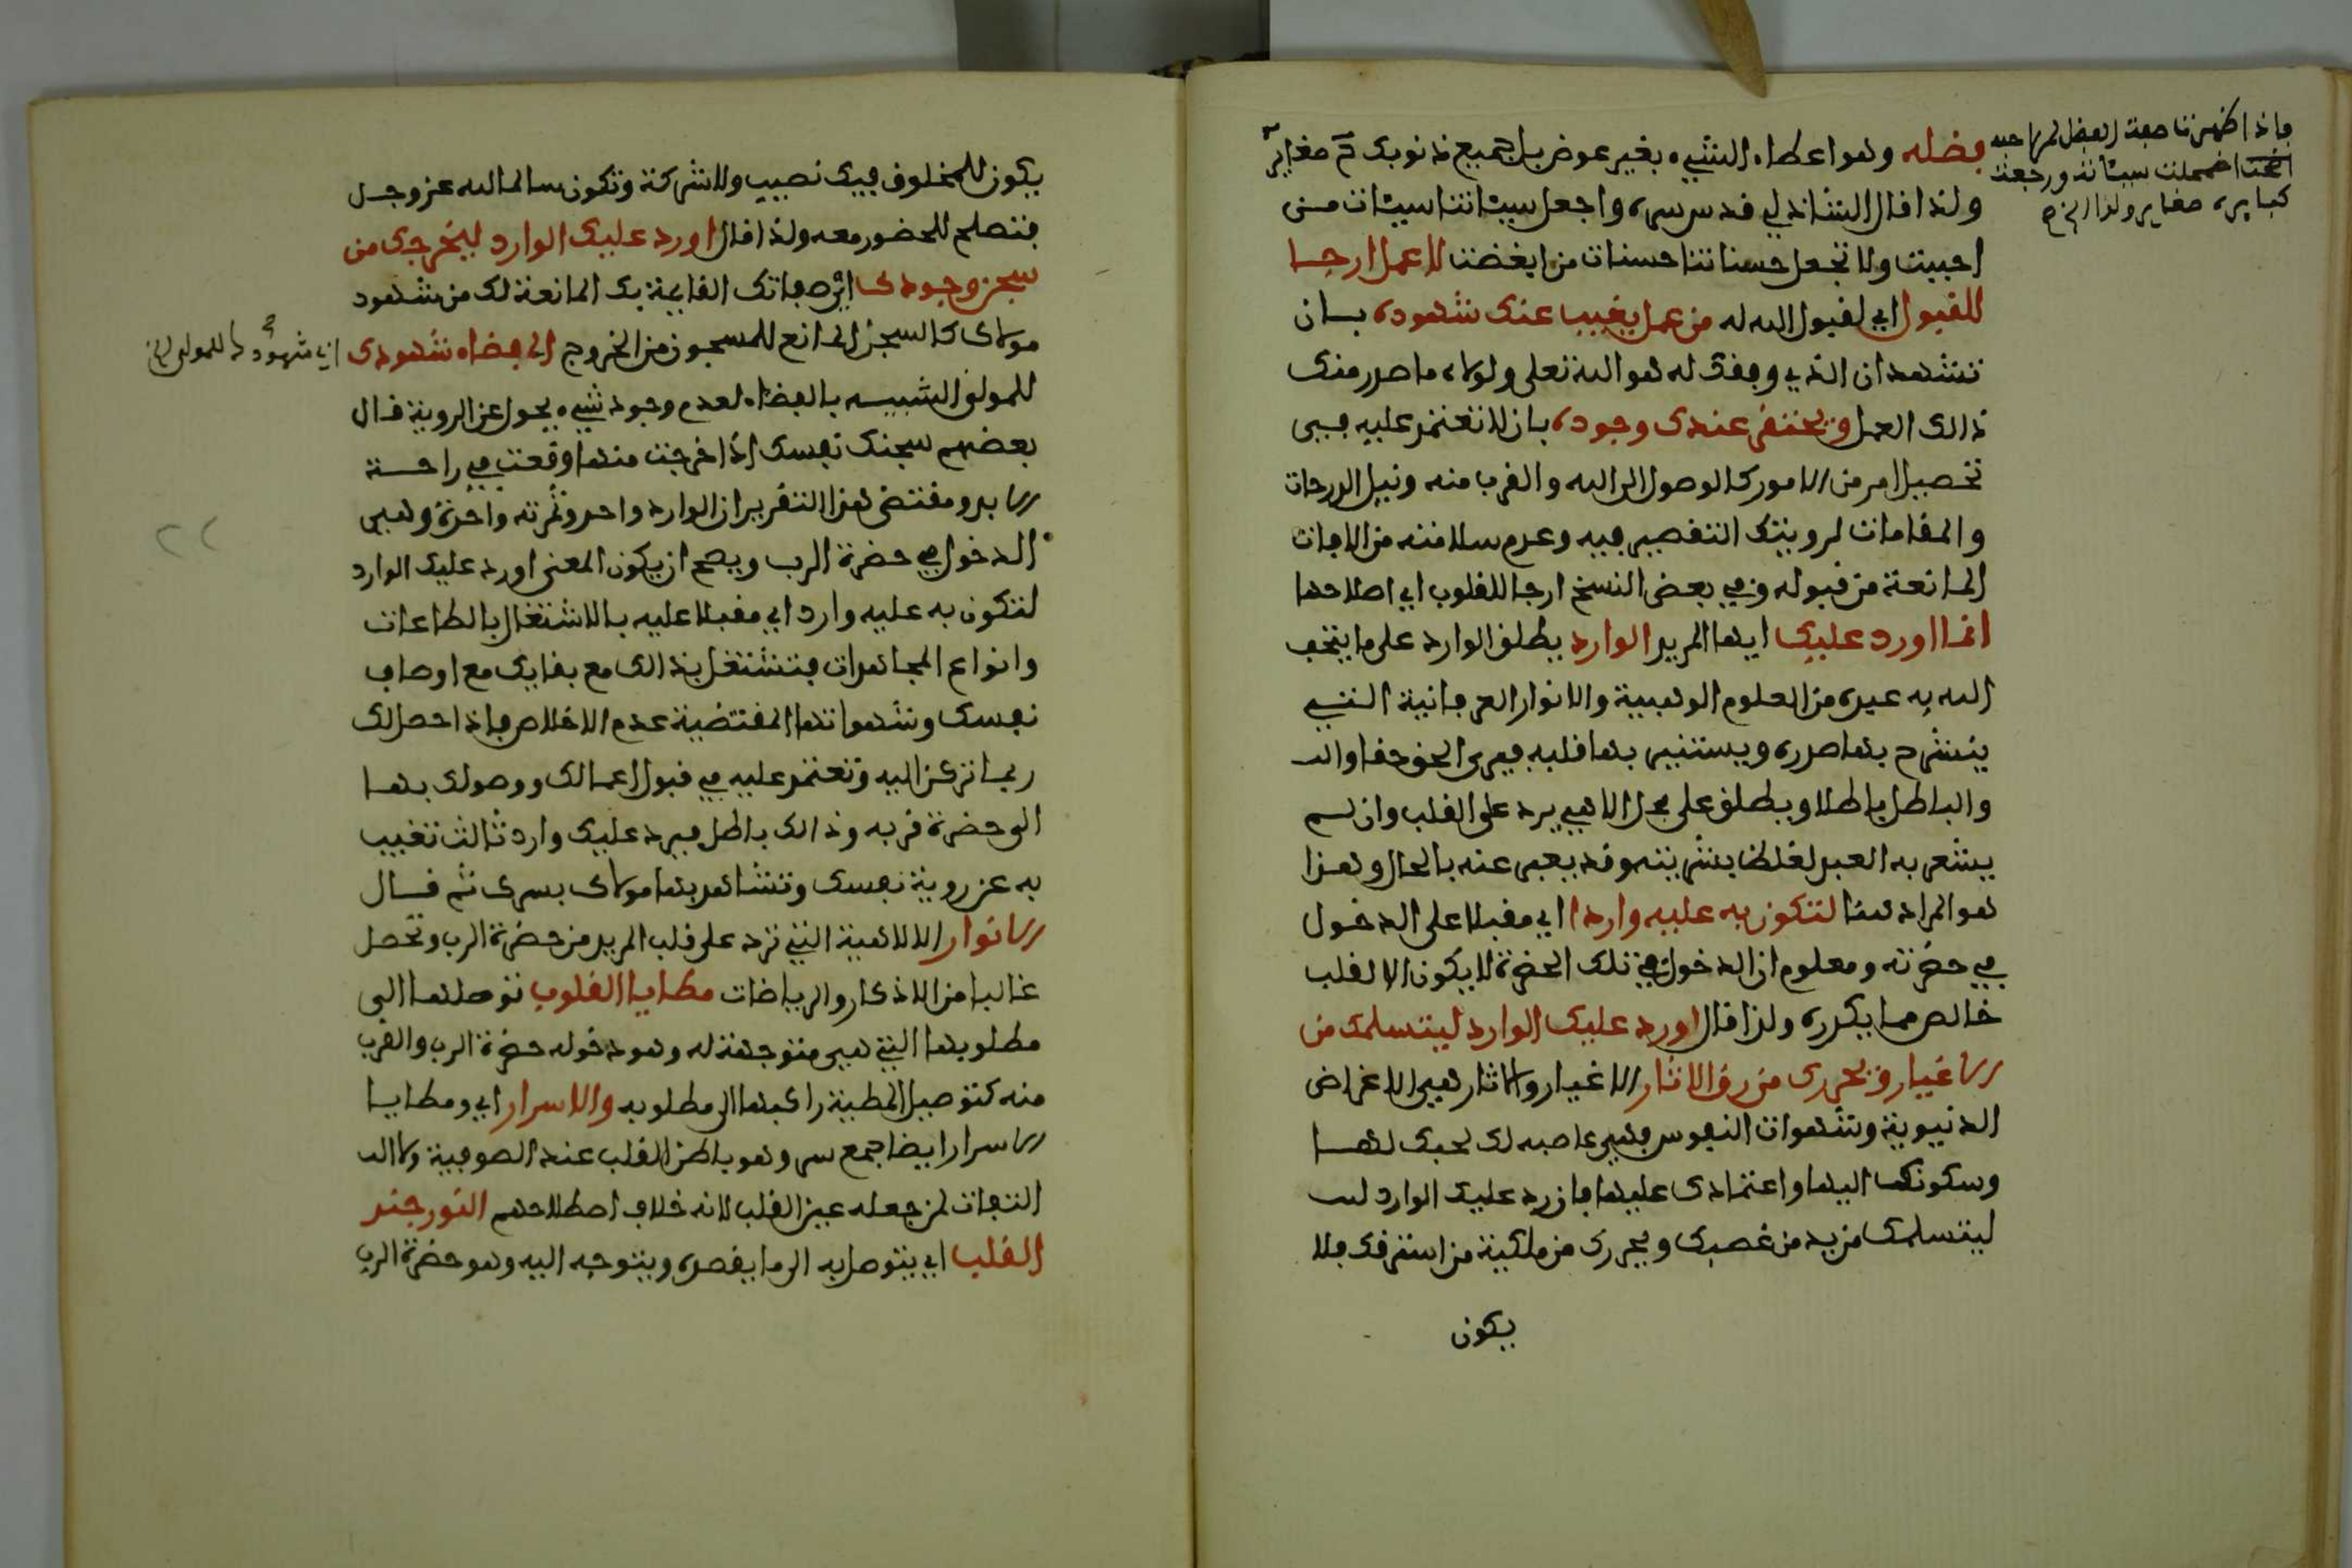 فضله وهو اعطاء الشيء بغير عوض بل جميع ذنوبك ح صغاير
ولذا قال الشاذلي قدس سره واجعل سيئاتنا سيئات من
احببت ولا تجعل حسناتنا حسنات من ابغضت لا عمل ارجا
للقبول اي لقبول الله له من عمل يغيب عنك شهوده بان
تشهد ان الذي وفقك له هو الله تعلى ولولاه ما صدر منك
ذالك العمل ويحتقر عندك وجوده بان لا تعتمد عليه في
تحصيل امر من الامور كالوصول الى الله والقرب منه ونيل الدرجات
والمقامات لرويتك التقصير فيه وعدم سلامته من الافات
المانعة من قبوله وفي بعض النسخ ارجا للقلوب اي اصلاحها
انما اورد عليك ايها المريد الوارد يطلق الوارد على ما يتحف
الله به عبده من العلوم الوهبية والانوار العرفانية التي
ينشرح بها صدره ويستنير بها قلبه فيرى الحق حقا وال
والباطل باطلا ويطلق على تجل الاهي يرد على القلب وان لم
يشعر به العبد لغلظ بشريته وقد يعبر عنه بالحال وهذا
هو المراد هنا لتكون به عليه واردا اي مقبلا على الدخول
في حضرته ومعلوم ان الدخول في تلك الحضرة لا يكون الا لقلب
خالص مما يكدره ولذا قال اورد عليك الوارد ليتسلمك من
الاغيار ويحررك من رق الاثار الاغيار والاثار هي الاغراض
الدنيوية وشهوات النفوس فهي غاصبه لك لحبك لها
وسكونك اليها واعتمادك عليها فاورد عليك الوارد
ليتسلمك من يد من غصبك ويحررك من ملكية من استرقك فلا
يكون
فاذا ظهرت صفة الفضل لمن احبه
اضمحلت سيئاته ورجعت
كبايره صغاير ولذا الخ
يكون للمخلوق فيك نصيب ولا شركة وتكون سالما لله عز وجل
فتصلح للحضور معه ولذا قال اورد عليك الوارد ليخرجك من
سجن وجودك اي صفاتك القايمة بك المانعة لك من شهود
مولاك كالسجن المانع للمسجون من الخروج الى فضاء شهودك
اي شهودك للمولى
للمولى الشبيه بالفضاء لعدم وجود شيء يحول عن الروية قال
بعضهم سجنك نفسك اذا خرجت منها وقعت في راحة
الابد ومقتضى هذا التقرير ان الوارد واحد وثمرته واحدة وهي
الدخول في حضرة الرب ويصح ان يكون المعنى اورد عليك الوارد
لتكون به عليه وارد اي مقبلا عليه بالاشتغال بالطاعات
وانواع المجاهدات فتشتغل بذالك مع بقايك مع اوصاف
نفسك وشهواتها المقتضية عدم الاخلاص فاذا حصل لك
ربما تركن اليه وتعتمد عليه في قبول اعمالك ووصولك بها
الى حضرة قربه وذالك باطل فيرد عليك وارد ثالث تغيب
به عن روية نفسك وتشاهد بها مولاك بسرك ثم قال
الانوار الالاهية التي ترد على قلب المريد من حضرة الرب وتحصل
غالبا من الاذكار والرياضات مطايا القلوب توصلها الى
مطلوبها التي هي متوجهة له وهو دخوله حضرة الرب والقرب
منه كتوصيل المطية راكبها الى مطلوبه والاسرار اي ومطايا
الاسرار ايضا جمع سر وهو باطن القلب عند الصوفية ولا
التفات لمن جعله عين القلب لانه خلاف اصطلاحهم النور جند
القلب اي يتوصل به الى ما يقصده ويتوجه اليه وهو حضرة الرب
٢٢